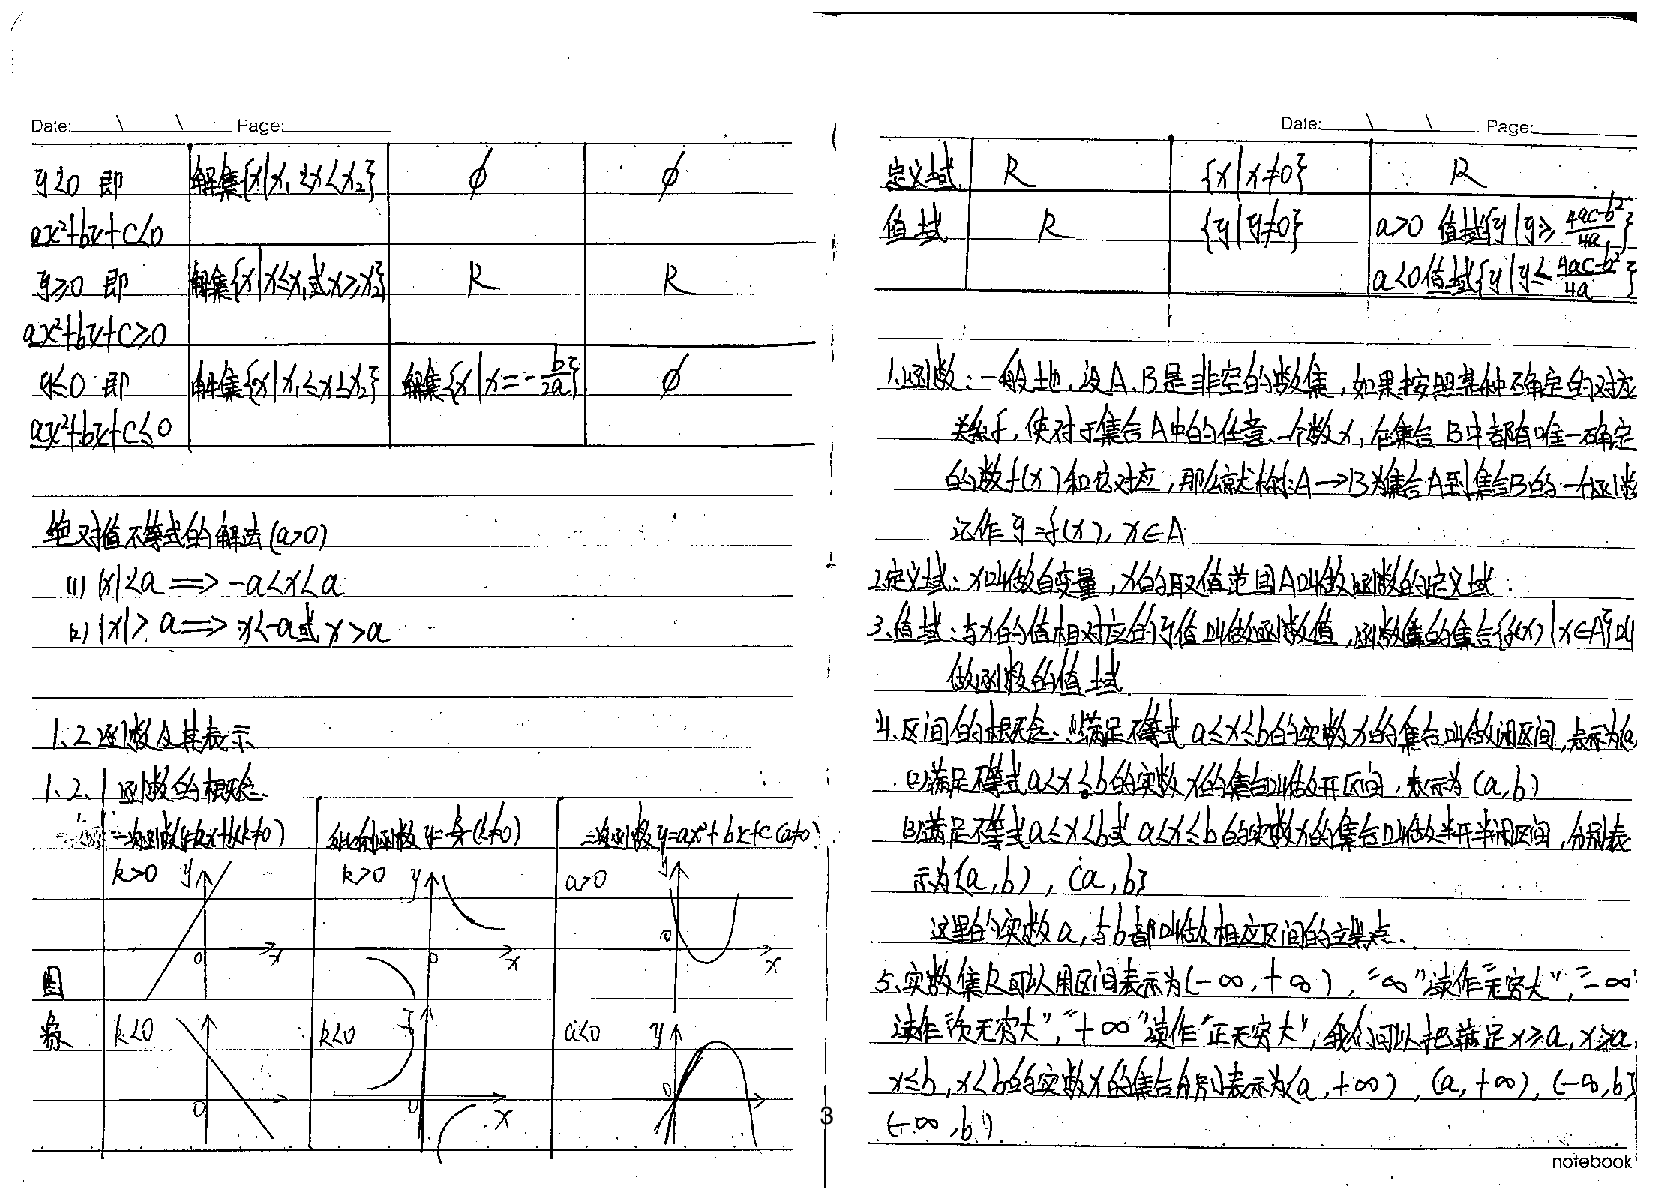 Date: \ \ Page:
y<0 即 解集{x|x₁<x<x₂} ∅ ∅
ax²+bx+c<0
y≥0 即 解集{x|x≤x₁或x≥x₂} R R
ax²+bx+c≥0
y≤0 即 解集{x|x₁≤x≤x₂} 解集{x|x=-b/2a} ∅
ax²+bx+c≤0
绝对值不等式的解法(a>0)
(1) |x|<a ⟹ -a<x<a
(2) |x|>a ⟹ x<-a或x>a
1.2 函数及其表示
1.2.1 函数的概念
一次函数y=kx+b(k≠0) 反比例函数y=k/x(k≠0) 二次函数y=ax²+bx+c(a≠0)
k>0 y k>0 y a>0 y
0 x 0 x 0 x
图
象 k<0 k<0 y a<0 y
0 0 x 0
3
Date: \ \ Page:
定义域 R {x|x≠0} R
值域 R {y|y≠0} a>0 值域{y|y≥4ac-b²/4a}
a<0值域{y|y≤4ac-b²/4a}
1.函数:一般地,设A、B是非空的数集,如果按照某种确定的对应
关系f,使对于集合A中的任意一个数x,在集合B中都有唯一确定
的数f(x)和它对应,那么就称f:A→B为集合A到集合B的一个函数
记作y=f(x), x∈A
2.定义域:x叫做自变量,x的取值范围A叫做函数的定义域:
3.值域:与x的值相对应的y值叫做函数值,函数值的集合{f(x)|x∈A}叫
做函数的值域
4.区间的概念:(1)满足不等式a≤x≤b的实数x的集合叫做闭区间,表示为[a
(2)满足不等式a<x<b的实数x的集合叫做开区间,表示为(a,b)
(3)满足不等式a≤x<b或a<x≤b的实数x的集合叫做半开半闭区间,分别表
示为[a,b), (a,b]
这里的实数a,与b都叫做相应区间的端点.
5.实数集R可以用区间表示为(-∞,+∞),"∞"读作"无穷大","-∞"
读作"负无穷大","+∞"读作"正无穷大",我们可以把满足x≥a,x>a,
x≤b,x<b的实数x的集合分别表示为[a,+∞), (a,+∞), (-∞,b]
(-∞,b).
notebook